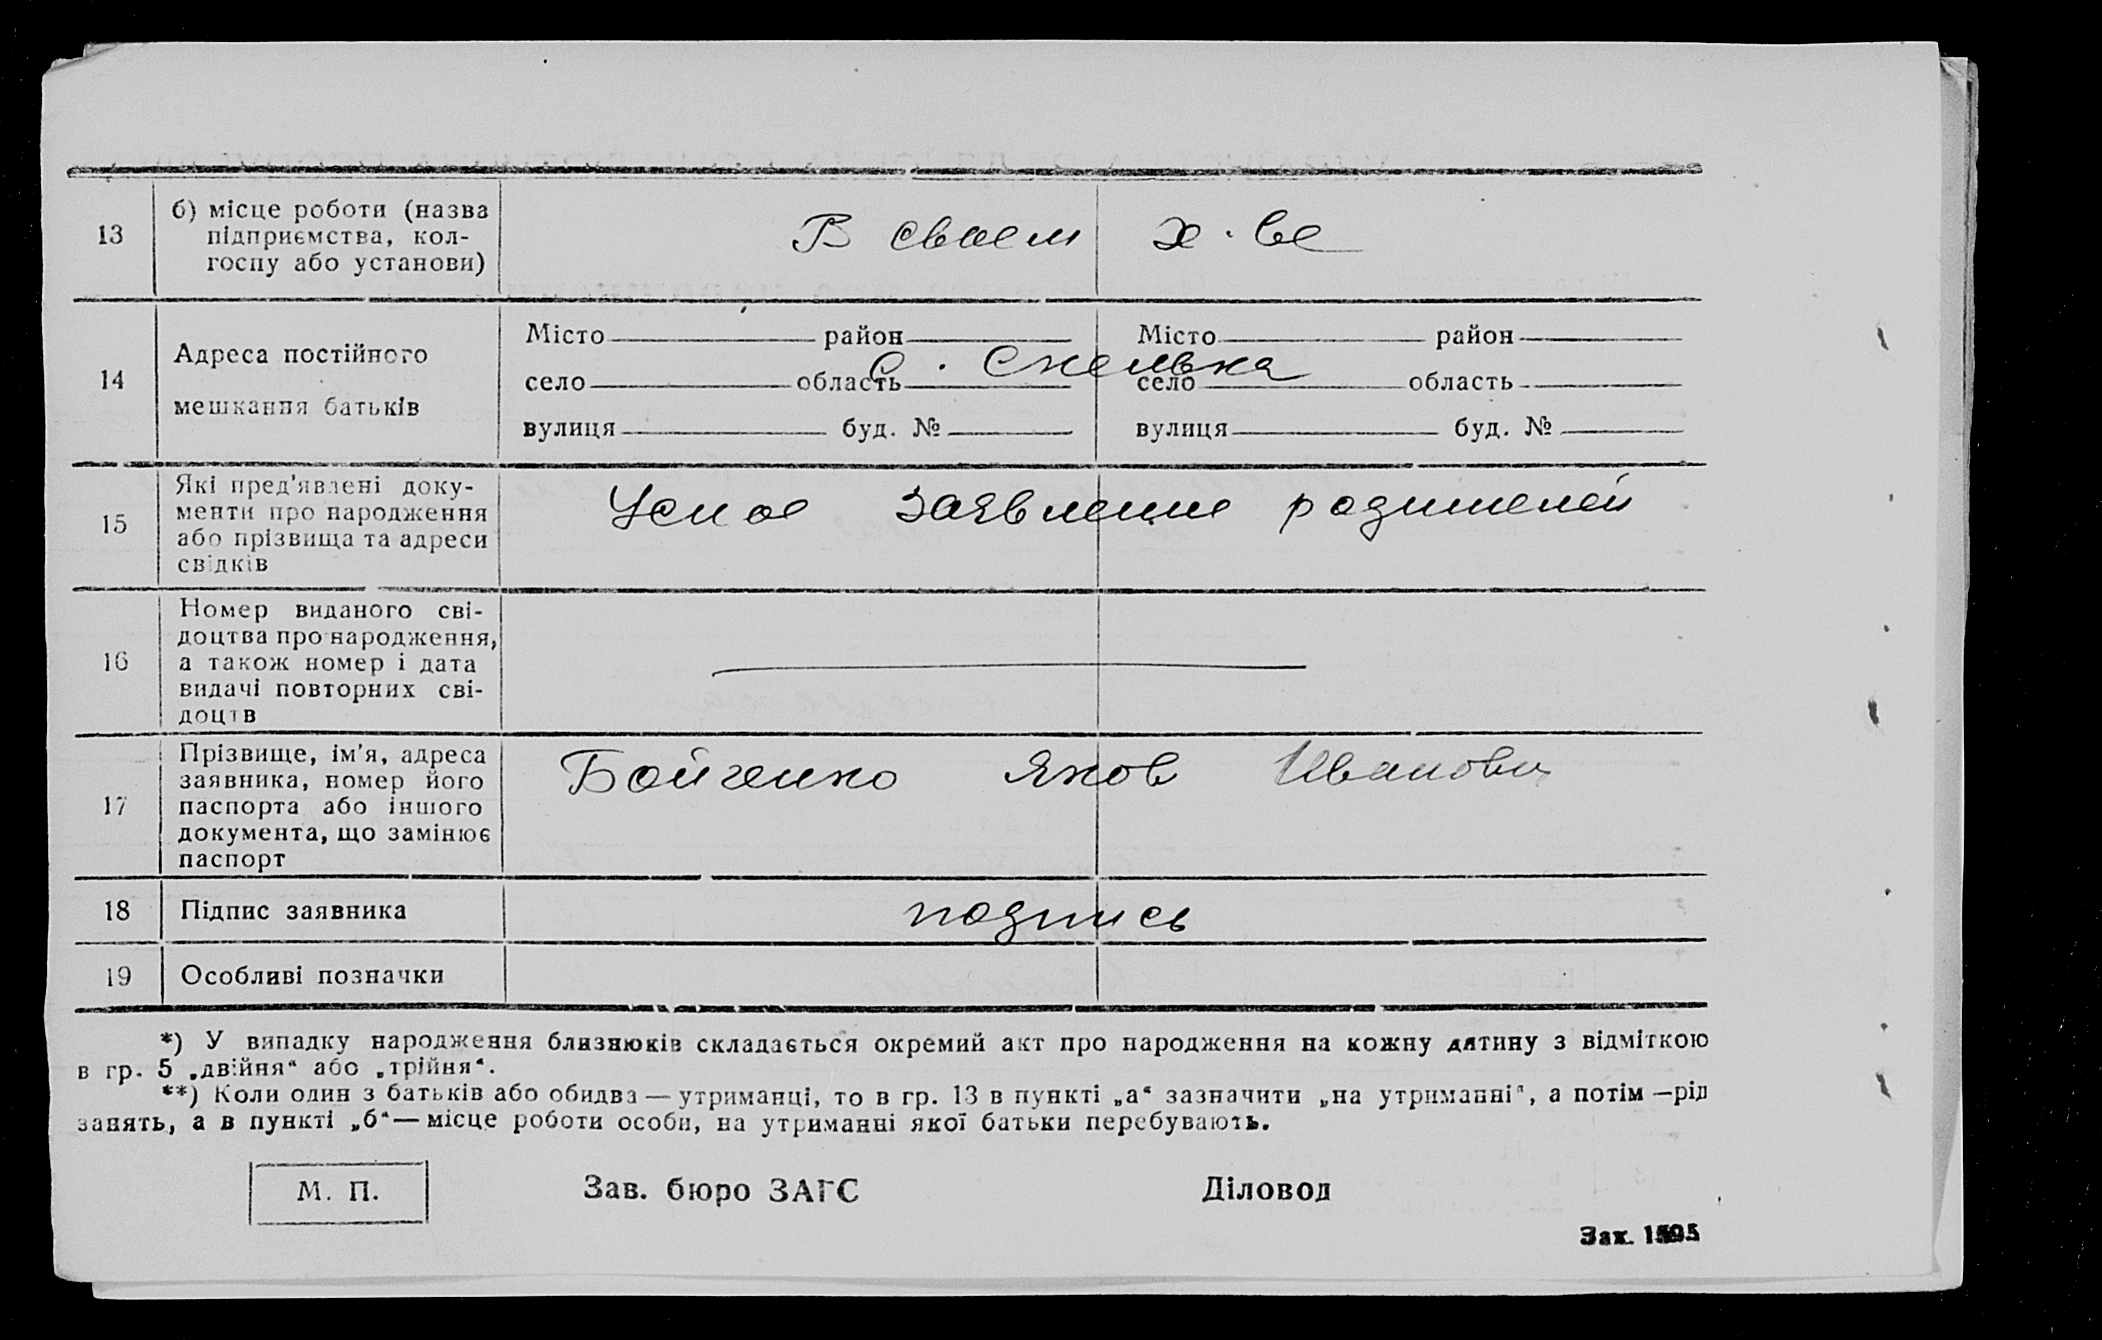 13
б) місце роботи (назва
підприємства, кол-
госпу або установи)
В своем х-ве
14
Адреса постійного
мешкання батьків
Місто район Місто район
с. Скелька
село область село область
вулиця буд. № вулиця буд. №
15
Які пред'явлені доку-
менти про народження
або прізвища та адреси
свідків
Усное заявление родителей
16
Номер виданого сві-
доцтва про народження,
а також номер і дата
видачі повторних сві-
доцтв
17
Прізвище, ім'я, адреса
заявника, номер його
паспорта або іншого
документа, що замінює
паспорт
Бойченко Яков Иванович
18 Підпис заявника подпись
19 Особливі позначки
*) У випадку народження близнюків складається окремий акт про народження на кожну дитину з відміткою
в гр. 5 „двійня“ або „трійня“.
**) Коли один з батьків або обидва — утриманці, то в гр. 13 в пункті „а“ зазначити „на утриманні“, а потім — рід
занять, а в пункті „б“ — місце роботи особи, на утриманні якої батьки перебувають.
М. П. Зав. бюро ЗАГС Діловод
Зак. 1595